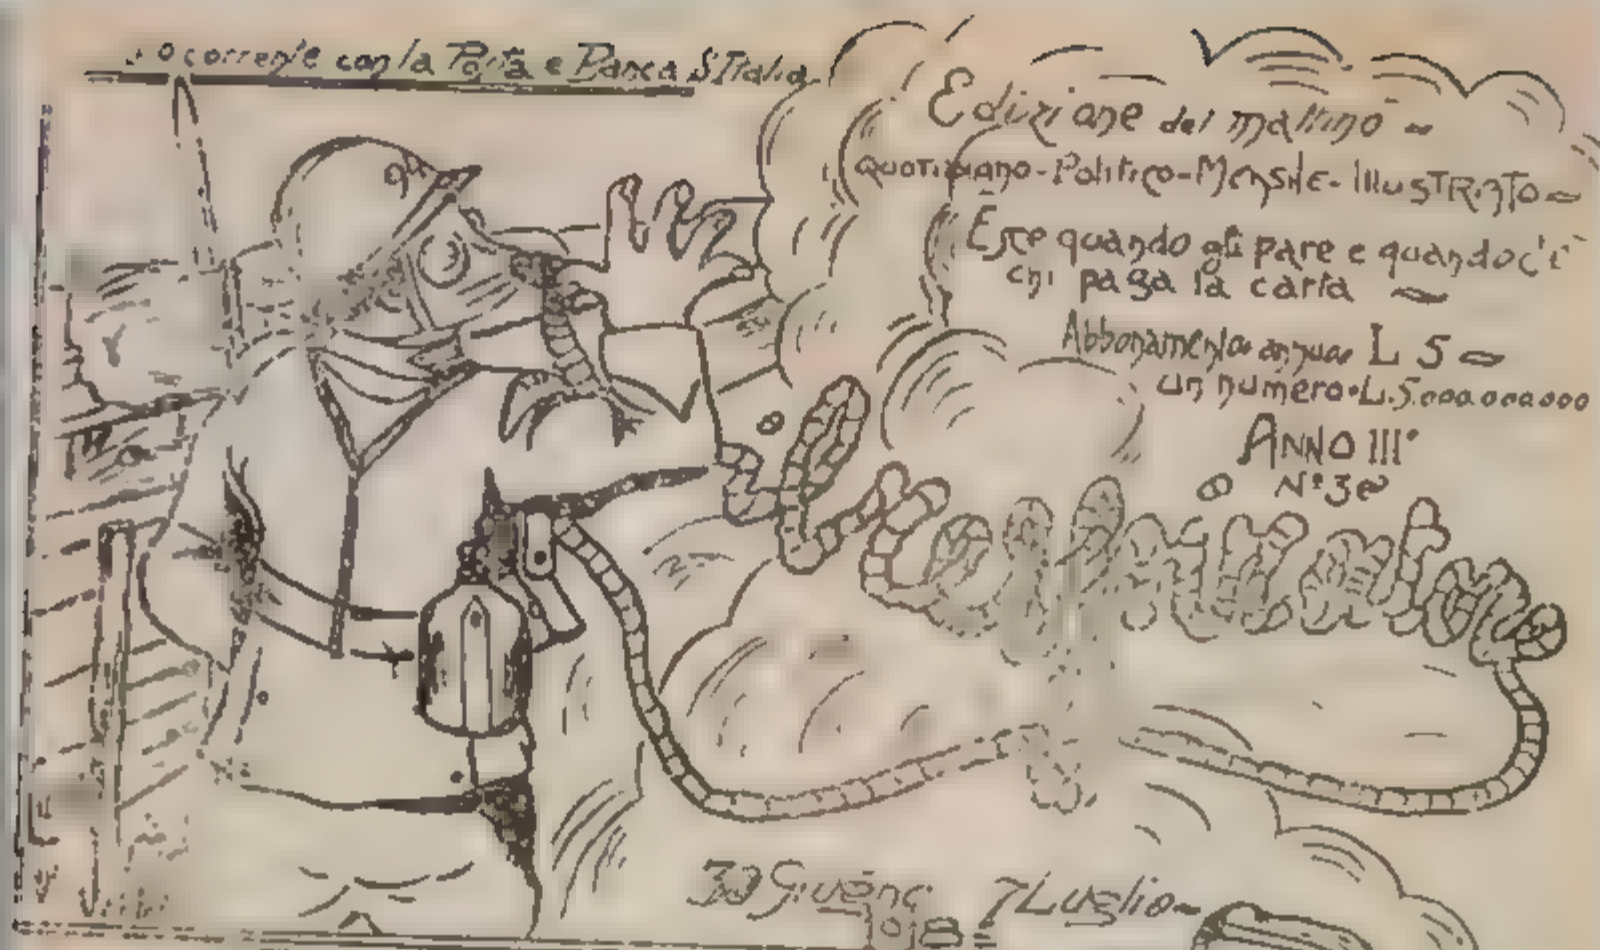 corrente con la Posta e Banca d'Italia
Edizione del mattino
QUOTIDIANO-Politico-Mensile-IllusTRATO
Esce quando gli pare e quando c'è
chi paga la carta
Abbonamento annuo L 5
un numero L.5.000000000
ANNO III°
N° 3
30 Giugno 7 Luglio